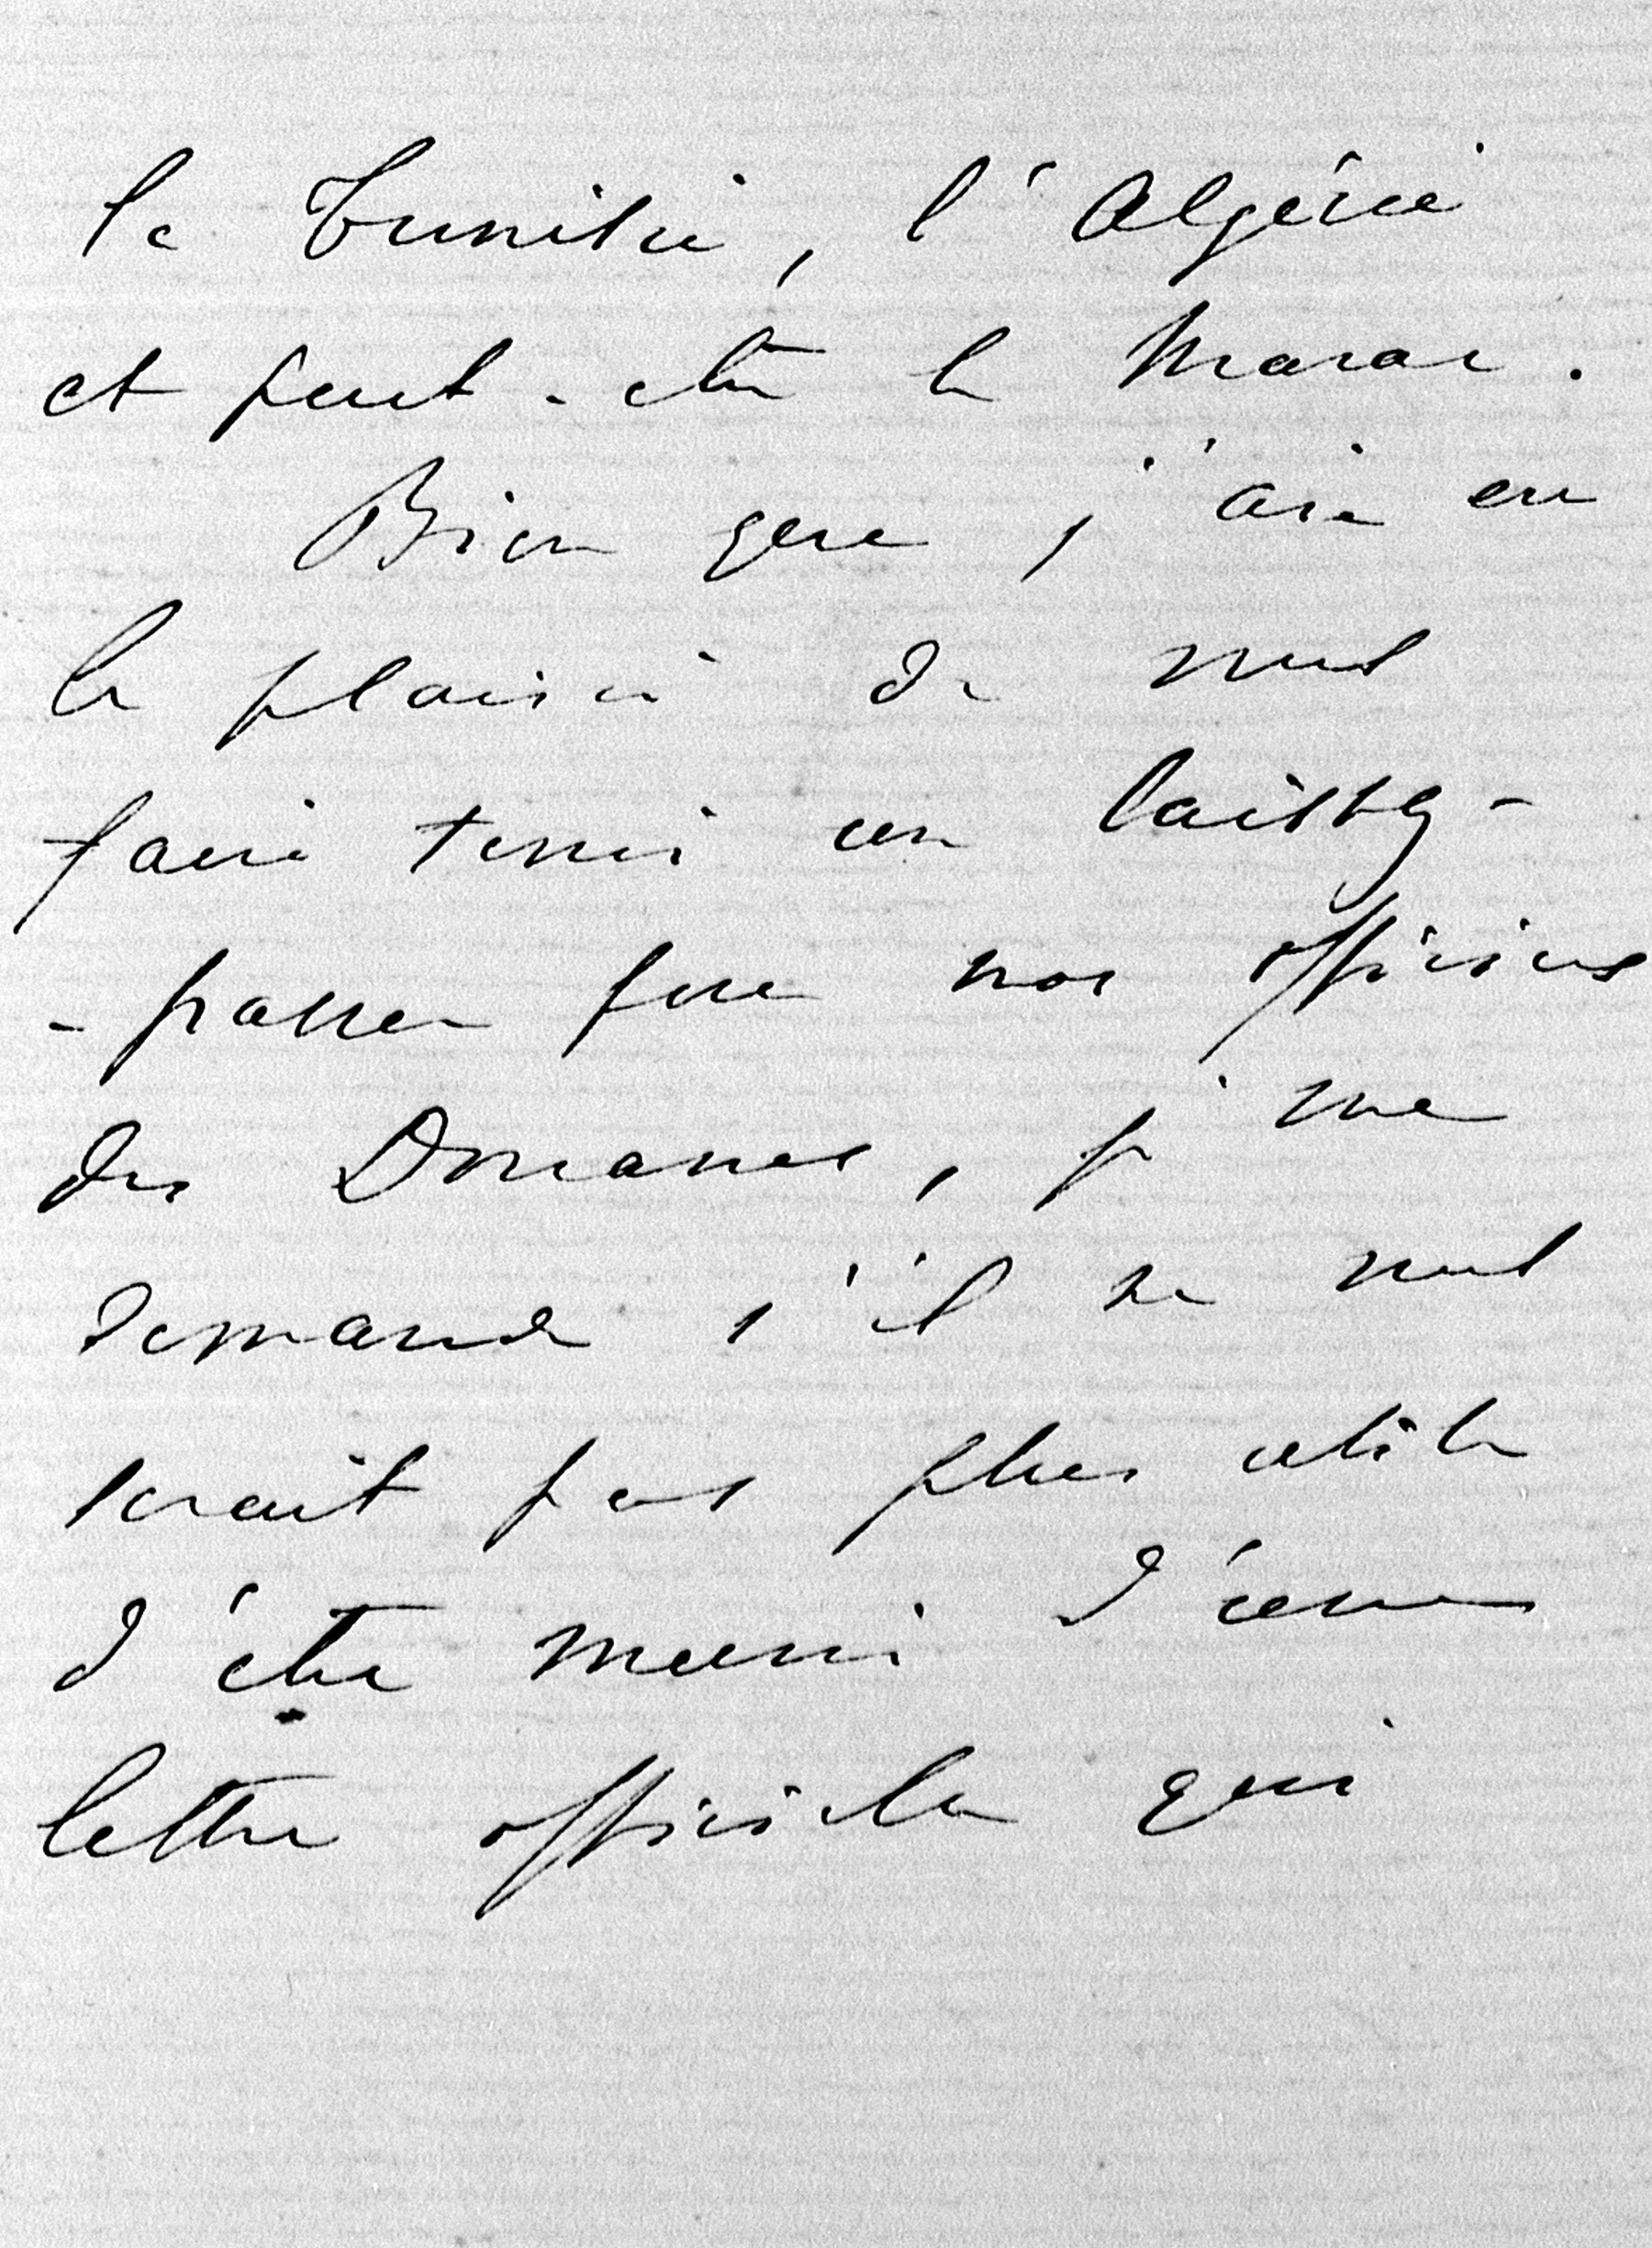 la Tunisie, l'Algérie
et peut-être le Maroc.
Bien que j'aie eu
le plaisir de vous
faire tenir un laissez-
-passer pour nos officiers
des Douanes, je me
demande s'il ne vous
serait pas plus utile
d'être muni d'une
lettre officielle qui